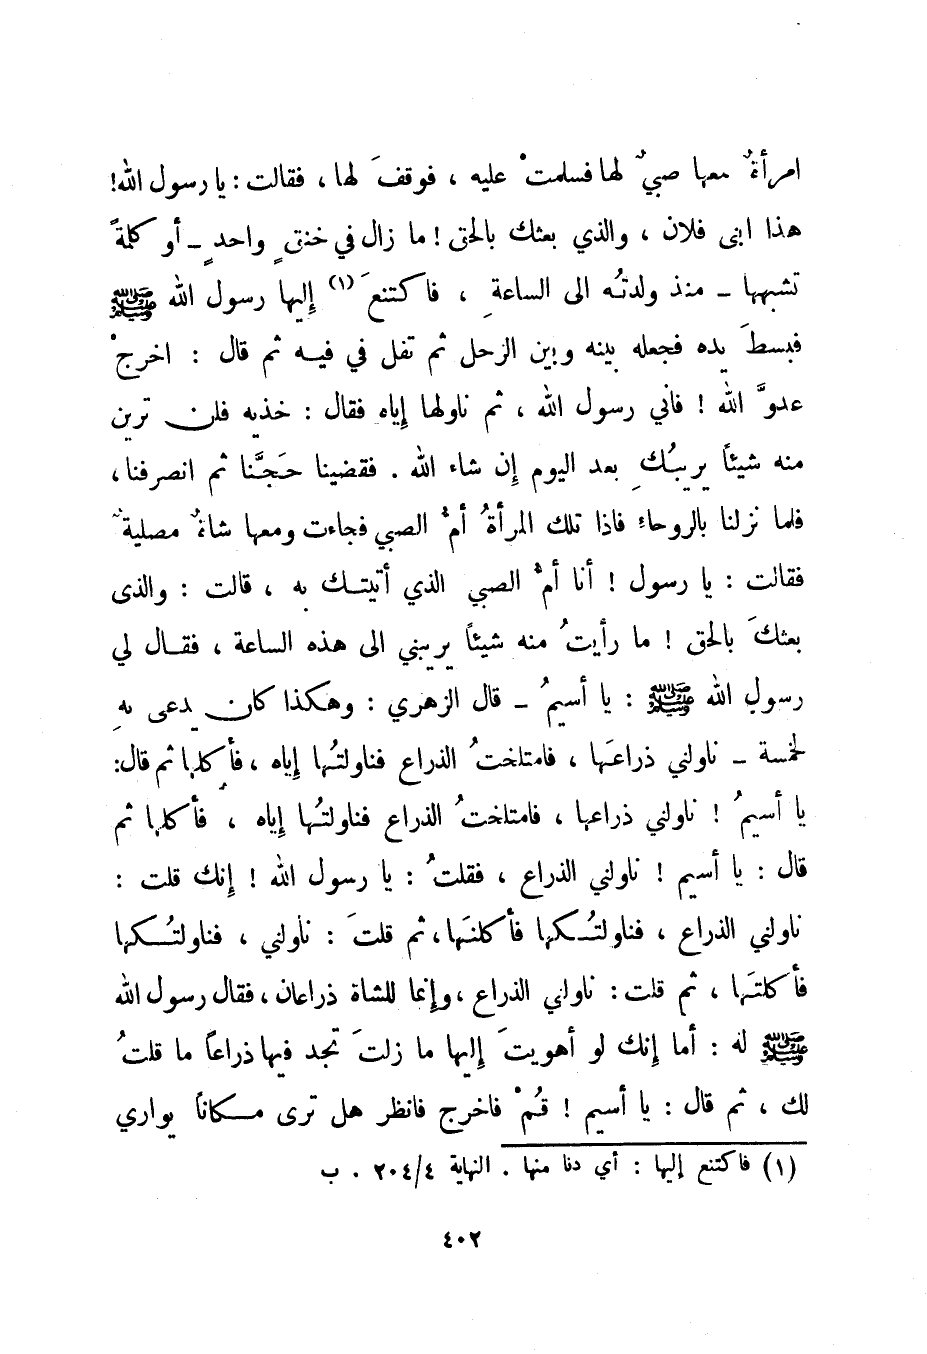 امرأةٌ معها صبيٌ لها فسلمتْ عليه ، فوقفَ لها ، فقالت : يا رسول الله!
هذا ابنى فلان ، والذي بعثك بالحق ! ما زال في خنقٍ واحدٍ ــ أو كلمةً
تشبهها ــ منذ ولدتُه الى الساعةِ ، فاكتنعَ (١) إليها رسول الله ﷺ
فبسطَ يده فجعله بينه وبين الرحل ثم تفل في فيه ثم قال : اخرجْ
عدوَّ الله ! فاني رسول الله ، ثم ناولها إياه فقال : خذيه فلن ترين
منه شيئاً يريبُكِ بعد اليوم إن شاء الله . فقضينا حَجَّنا ثم انصرفنا ،
فلما نزلنا بالروحاءِ فاذا تلك المرأةُ أمُّ الصبي فجاءت ومعها شاةٌ مصليةٌ
فقالت : يا رسول ! أنا أمُّ الصبي الذي أتيتك به ، قالت : والذى
بعثكَ بالحق ! ما رأيتُ منه شيئاً يريبني الى هذه الساعة ، فقال لي
رسول الله ﷺ : يا أسيمُ ــ قال الزهري : وهكذا كان يدعى بهِ
لخمسة ــ ناولني ذراعَها ، فامتلختُ الذراع فناولتُها إياه ، فأكلها ثم قال :
يا أسيمُ ! ناولني ذراعها ، فامتلختُ الذراع فناولتُها إياه ، فأكلها ثم
قال : يا أسيم ! ناولني الذراع ، فقلتُ : يا رسول الله ! إنك قلت :
ناولني الذراع ، فناولتُكها فأكلتَها ، ثم قلتَ : ناولني ، فناولتُكها
فأكلتَها ، ثم قلت : ناولني الذراع ، وإنما للشاة ذراعان ، فقال رسول الله
ﷺ له : أما إنك لو أهويتَ إليها ما زلتَ تجد فيها ذراعاً ما قلتُ
لك ، ثم قال : يا أسيم ! قُمْ فاخرج فانظر هل ترى مكاناً يواري
(١) فاكتنع إليها : أي دنا منها . النهاية ٢٠٤/٤ . ب
٤٠٢